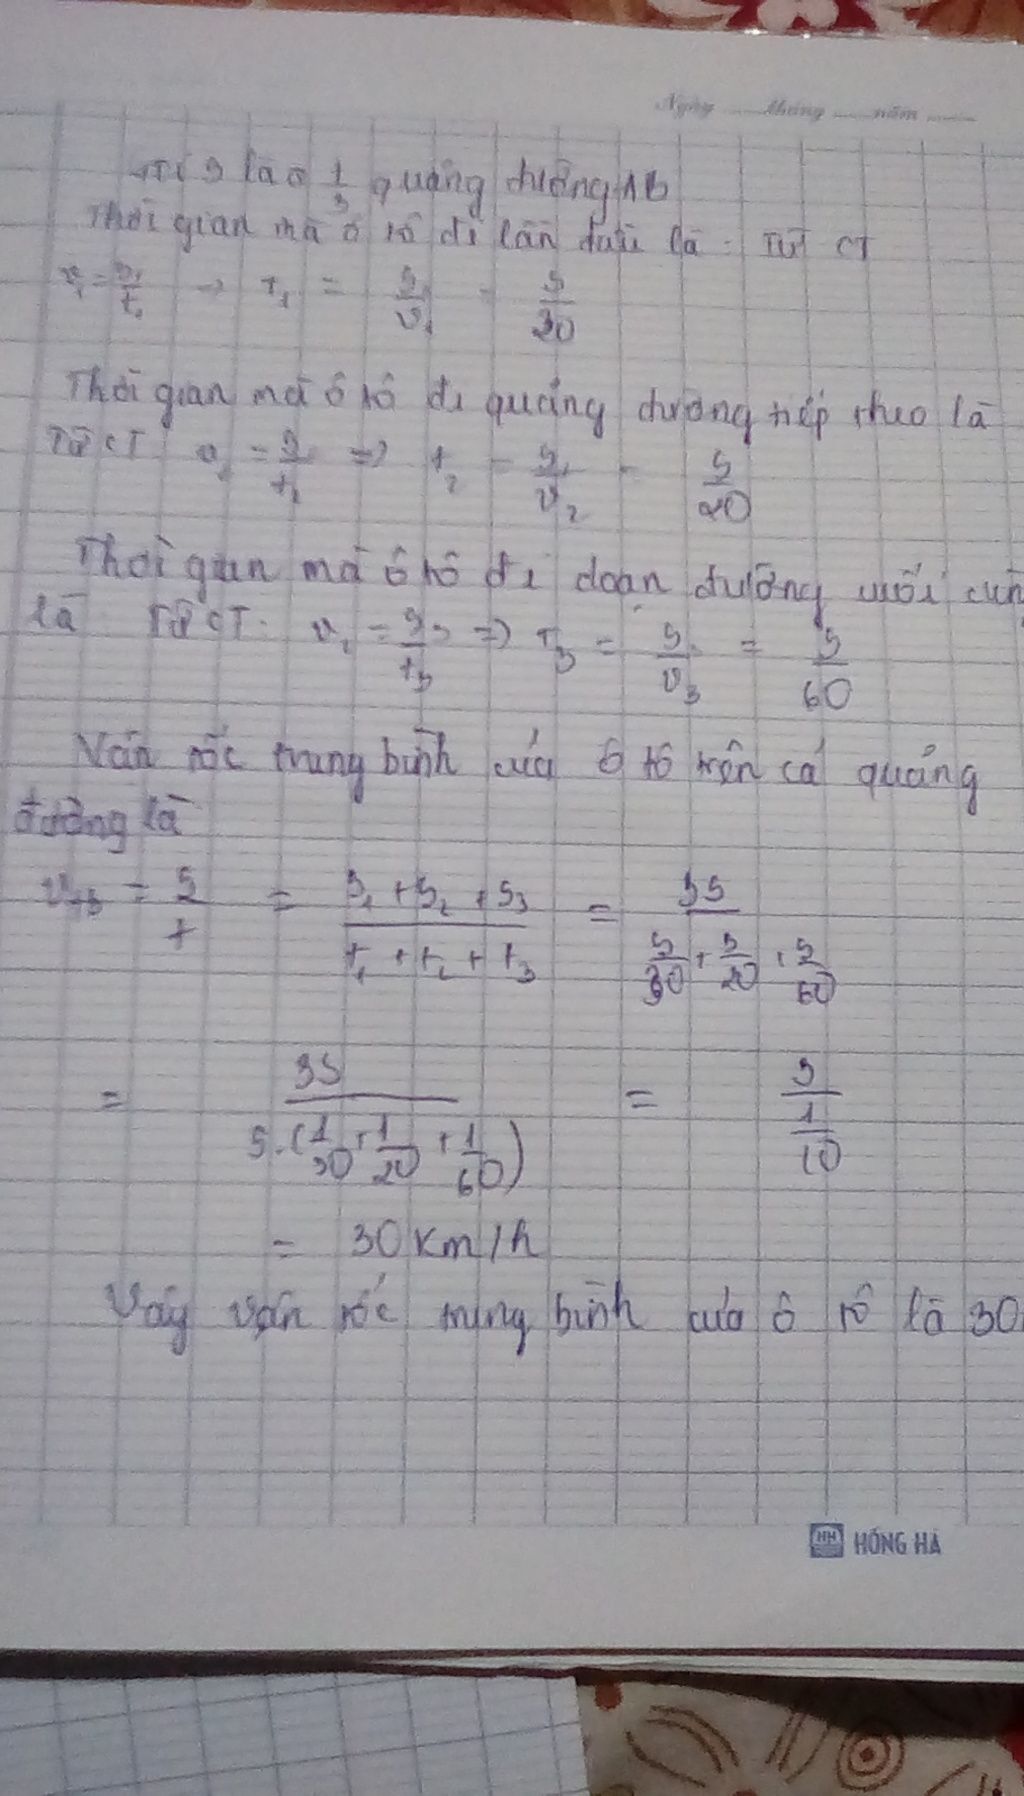 Ngày tháng năm
S là 1/3 quãng đường AB
Thời gian mà ô tô đi lần đầu là : Từ CT
v₁ = S₁/t₁ → t₁ = S/v₁ = S/30
Thời gian mà ô tô đi quãng đường tiếp theo là
Từ CT v₂ = S/t₂ => t₂ = S/v₂ = S/20
Thời gian mà ô tô đi đoạn đường cuối cùn
là Từ CT: = S₃/t₃ => t₃ = S/v₃ = S/60
Vận tốc trung bình của ô tô trên cả quãng
đường là
vtb = S/t = (S₁ + S₂ + S₃)/(t₁ + t₂ + t₃) = 3S/(S/30 + S/20 + S/60)
= 3S/(S.(1/30 + 1/20 + 1/60)) = 3/(1/10)
= 30 km/h
Vậy vận tốc trung bình của ô tô là 30
HH HỒNG HÀ